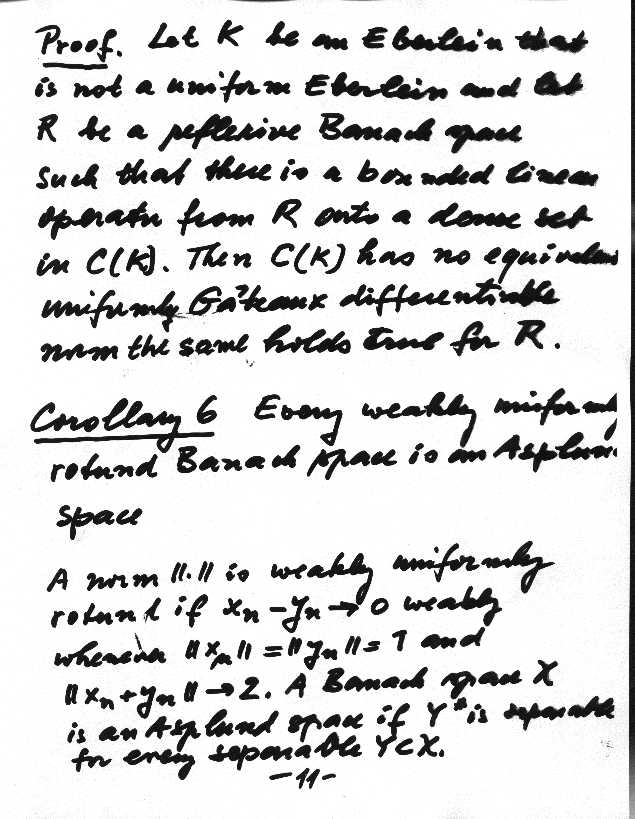 Proof. Let K be an Eberlein that
is not a uniform Eberlein and let
R be a reflexive Banach space
such that there is a bounded linear
operator from R onto a dense set
in C(K). Then C(K) has no equivalent
uniformly Gâteaux differentiable
norm the same holds true for R.
Corollary 6 Every weakly uniformly
rotund Banach space is an Asplund
space
A norm ||.|| is weakly uniformly
rotund if xn - yn → 0 weakly
whenever ||xn|| = ||yn|| = 1 and
||xn + yn || → 2. A Banach space X
is an Asplund space if Y* is separable
for every separable Y⊂X.
- 11 -